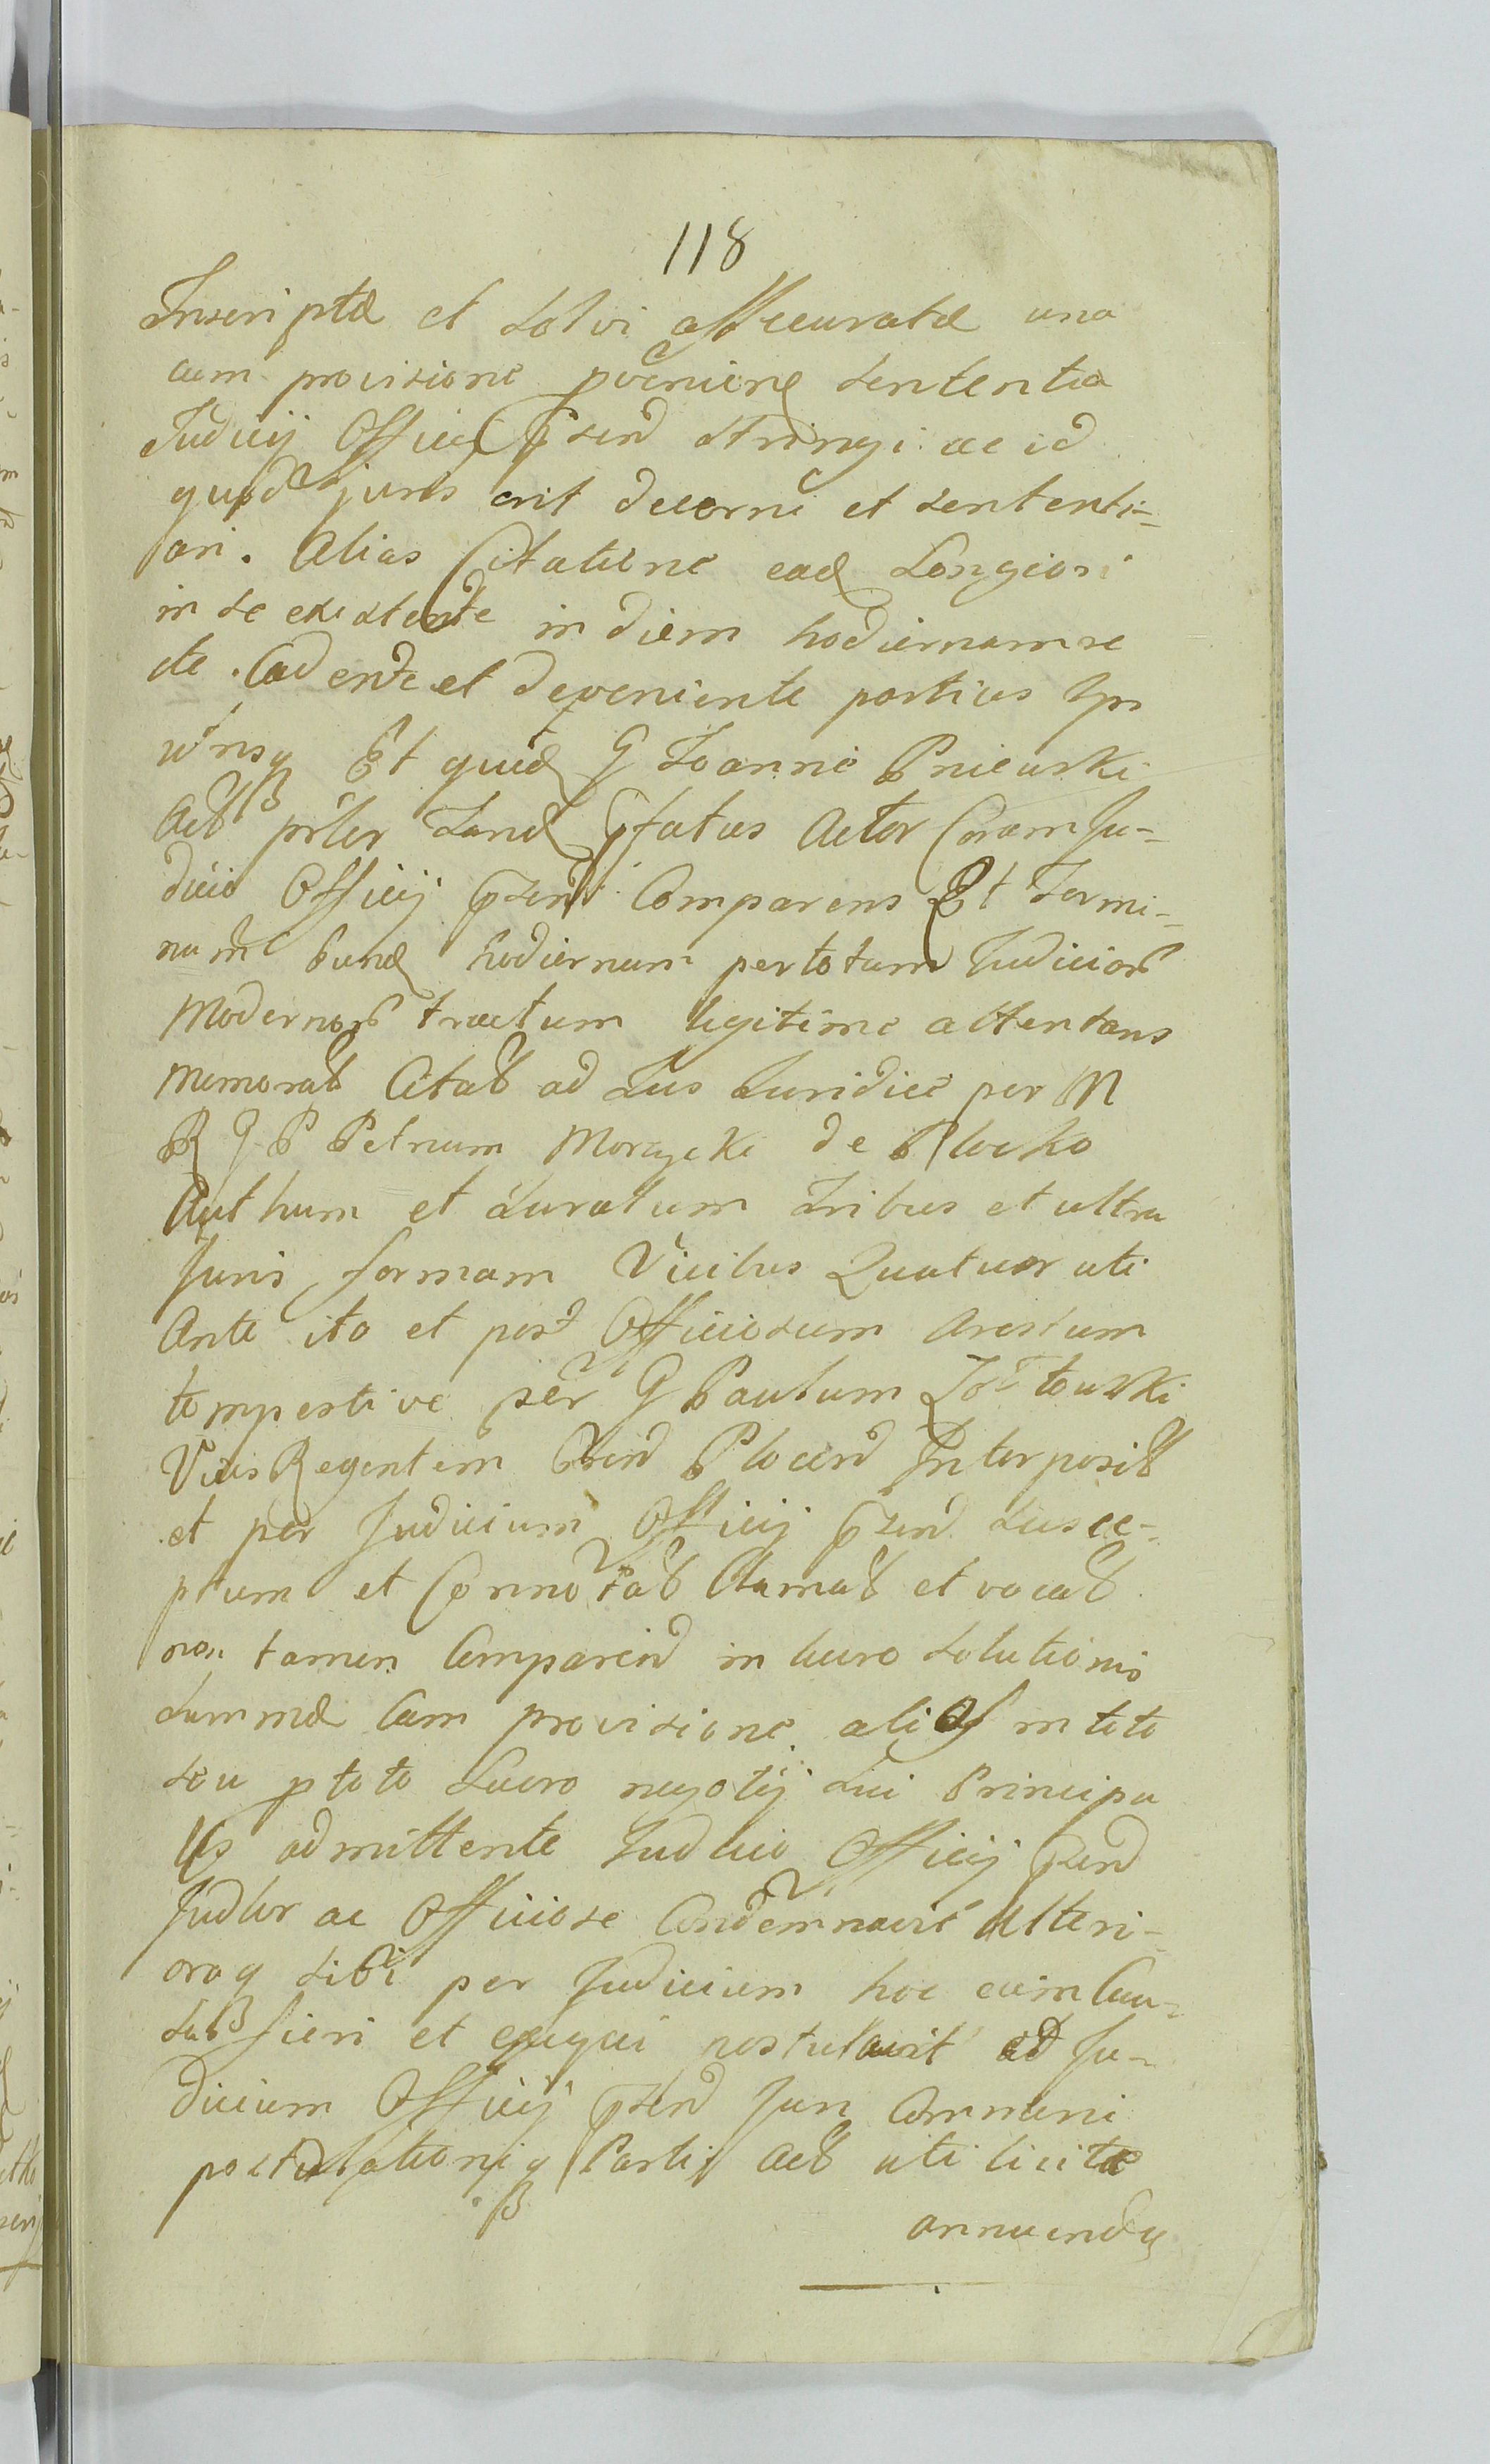 118
Inscriptæ et solvi assecuratæ una
cum provisione proveniend sententia
Judicij Officij psend stringi ac id
quod juris erit decerni et sententi-
ari. Alias Citatione ead Longiori
in se existente in diem hodiernum re
cte Cadente et deveniente partius Ips
Et quid G Joanne Pniewski
Act prter Land ptatus Actor Coram Ju-
dicio Officij psend Comparens Et Termi-
num hund hodiernum per totum Judicior
Modernor tractum legitime attentans
memorat Citat ad Jus Juridice per M
R G P Petrum Morzycki de Plocko
Auth um et Juratum tribus et ultra
Juris formam Vicibus Quatuor uti
Ante ita et post Officiosum Arestum
tempestive per G Paulum
Vices Regentem Plocen Interposit
et per Judicium Officij psend susce-
ptum et Connotat Clamat et vocat
non tamen Comparend in lucro solutionis
summæ Cum provisione alias in toto
seu ptoto Lucro negotij sui Principa
lis admittente Judicio Officij psend
Judlr ac Officiose Condemnavit Ulteri-
oraq sibi per Judicium hoc eum Cau-
sat fieri et exequi postulavit ad Ju-
dicium Officij psend Juri Communi
postulationiq Partis Act uti licitæ
annuendo